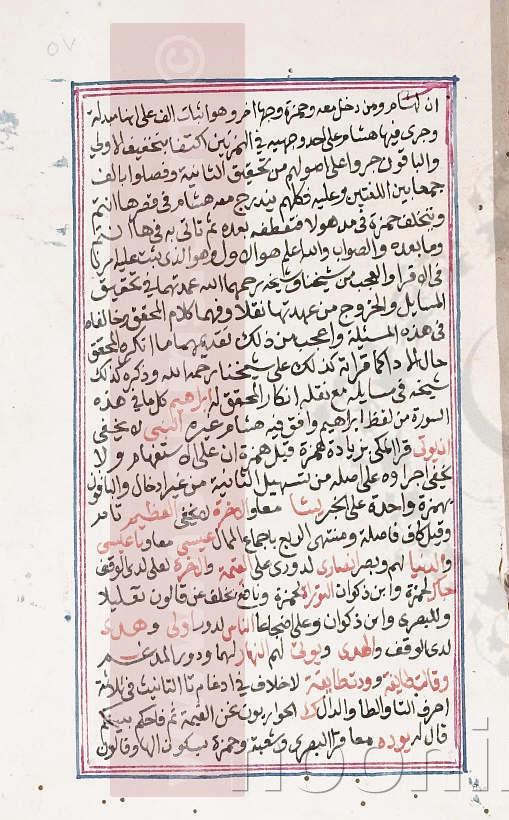 ٥٧
ان لهشام ومن دخل معه وحمزة وجها اخر وهو اثبات الف على انها مبدلة
وجرى فيها هشام على احد وجهيه في الهمزتين اكتفا بتخفيف الاولى
والباقون جروا على اصولهم من تحقيق الثانية وفصلوا بالف
جمعا بين اللغتين وعليه فكلهم يندرج معه هشام في قصرها انتم
ويتخلف حمزة في مد هولا فتعطفه بعده ثم تاتي به في ها انتم
وما بعده والصواب والله اعلم هو الاول وهو الذي ثبت عليه امرنا
في الاقرا والعجب من شيخنا وشيخه رحمهما الله عمدتهما في تحقيق
المسايل والخروج من عهدتها نقلا وفهما كلام المحقق وخالفاه
في هذه المسئلة واعجب من ذلك تقديمهما ما انكره المحقق
حال الاداء كما قراته كذلك على شيخنا رحمه الله وذكره كذلك
شيخه في مسايله مع نقله انكار المحقق له ابراهيم كل ما في هذه
السورة من لفظ ابراهيم وافق فيه هشام غيره النبي لا يخفى
ان يوتى قرا المكي بزيادة همزة قبل همزة ان على الاستفهام ولا
يخفى اجراؤه على اصله من تسهيل الثانية من غير ادخال والباقون
بهمزة واحدة على الخبر يشا معا والاخرة لا يخفى العظيم تام
وقيل كاف فاصلة ومنتهى الربع باجماع الممال عيسى معا يا عيسى
والدنيا لهم وبصر انصاري لدوري على القيمة والاخرة لعلي لدى الوقف
جاك لحمزة وابن ذكوان التوراة لحمزة ونافع بخلف عن قالون تقليلا
وللبصري وابن ذكوان وعلي اضجاعا الناس لدور اولى وهدى
لدى الوقف والهدى ويوتى لهم النهار لهما ودور المدغم
وقالت طايفة وودت طايفة لا خلاف في ادغام تا التانيث في ثلاثة
احرف التا والطا والدال ك الحواريون نحن القيمة ثم فاحكم بينكم
قال له يوده معا قرا البصري وشعبة وحمزة بسكون الها وقالون
noor